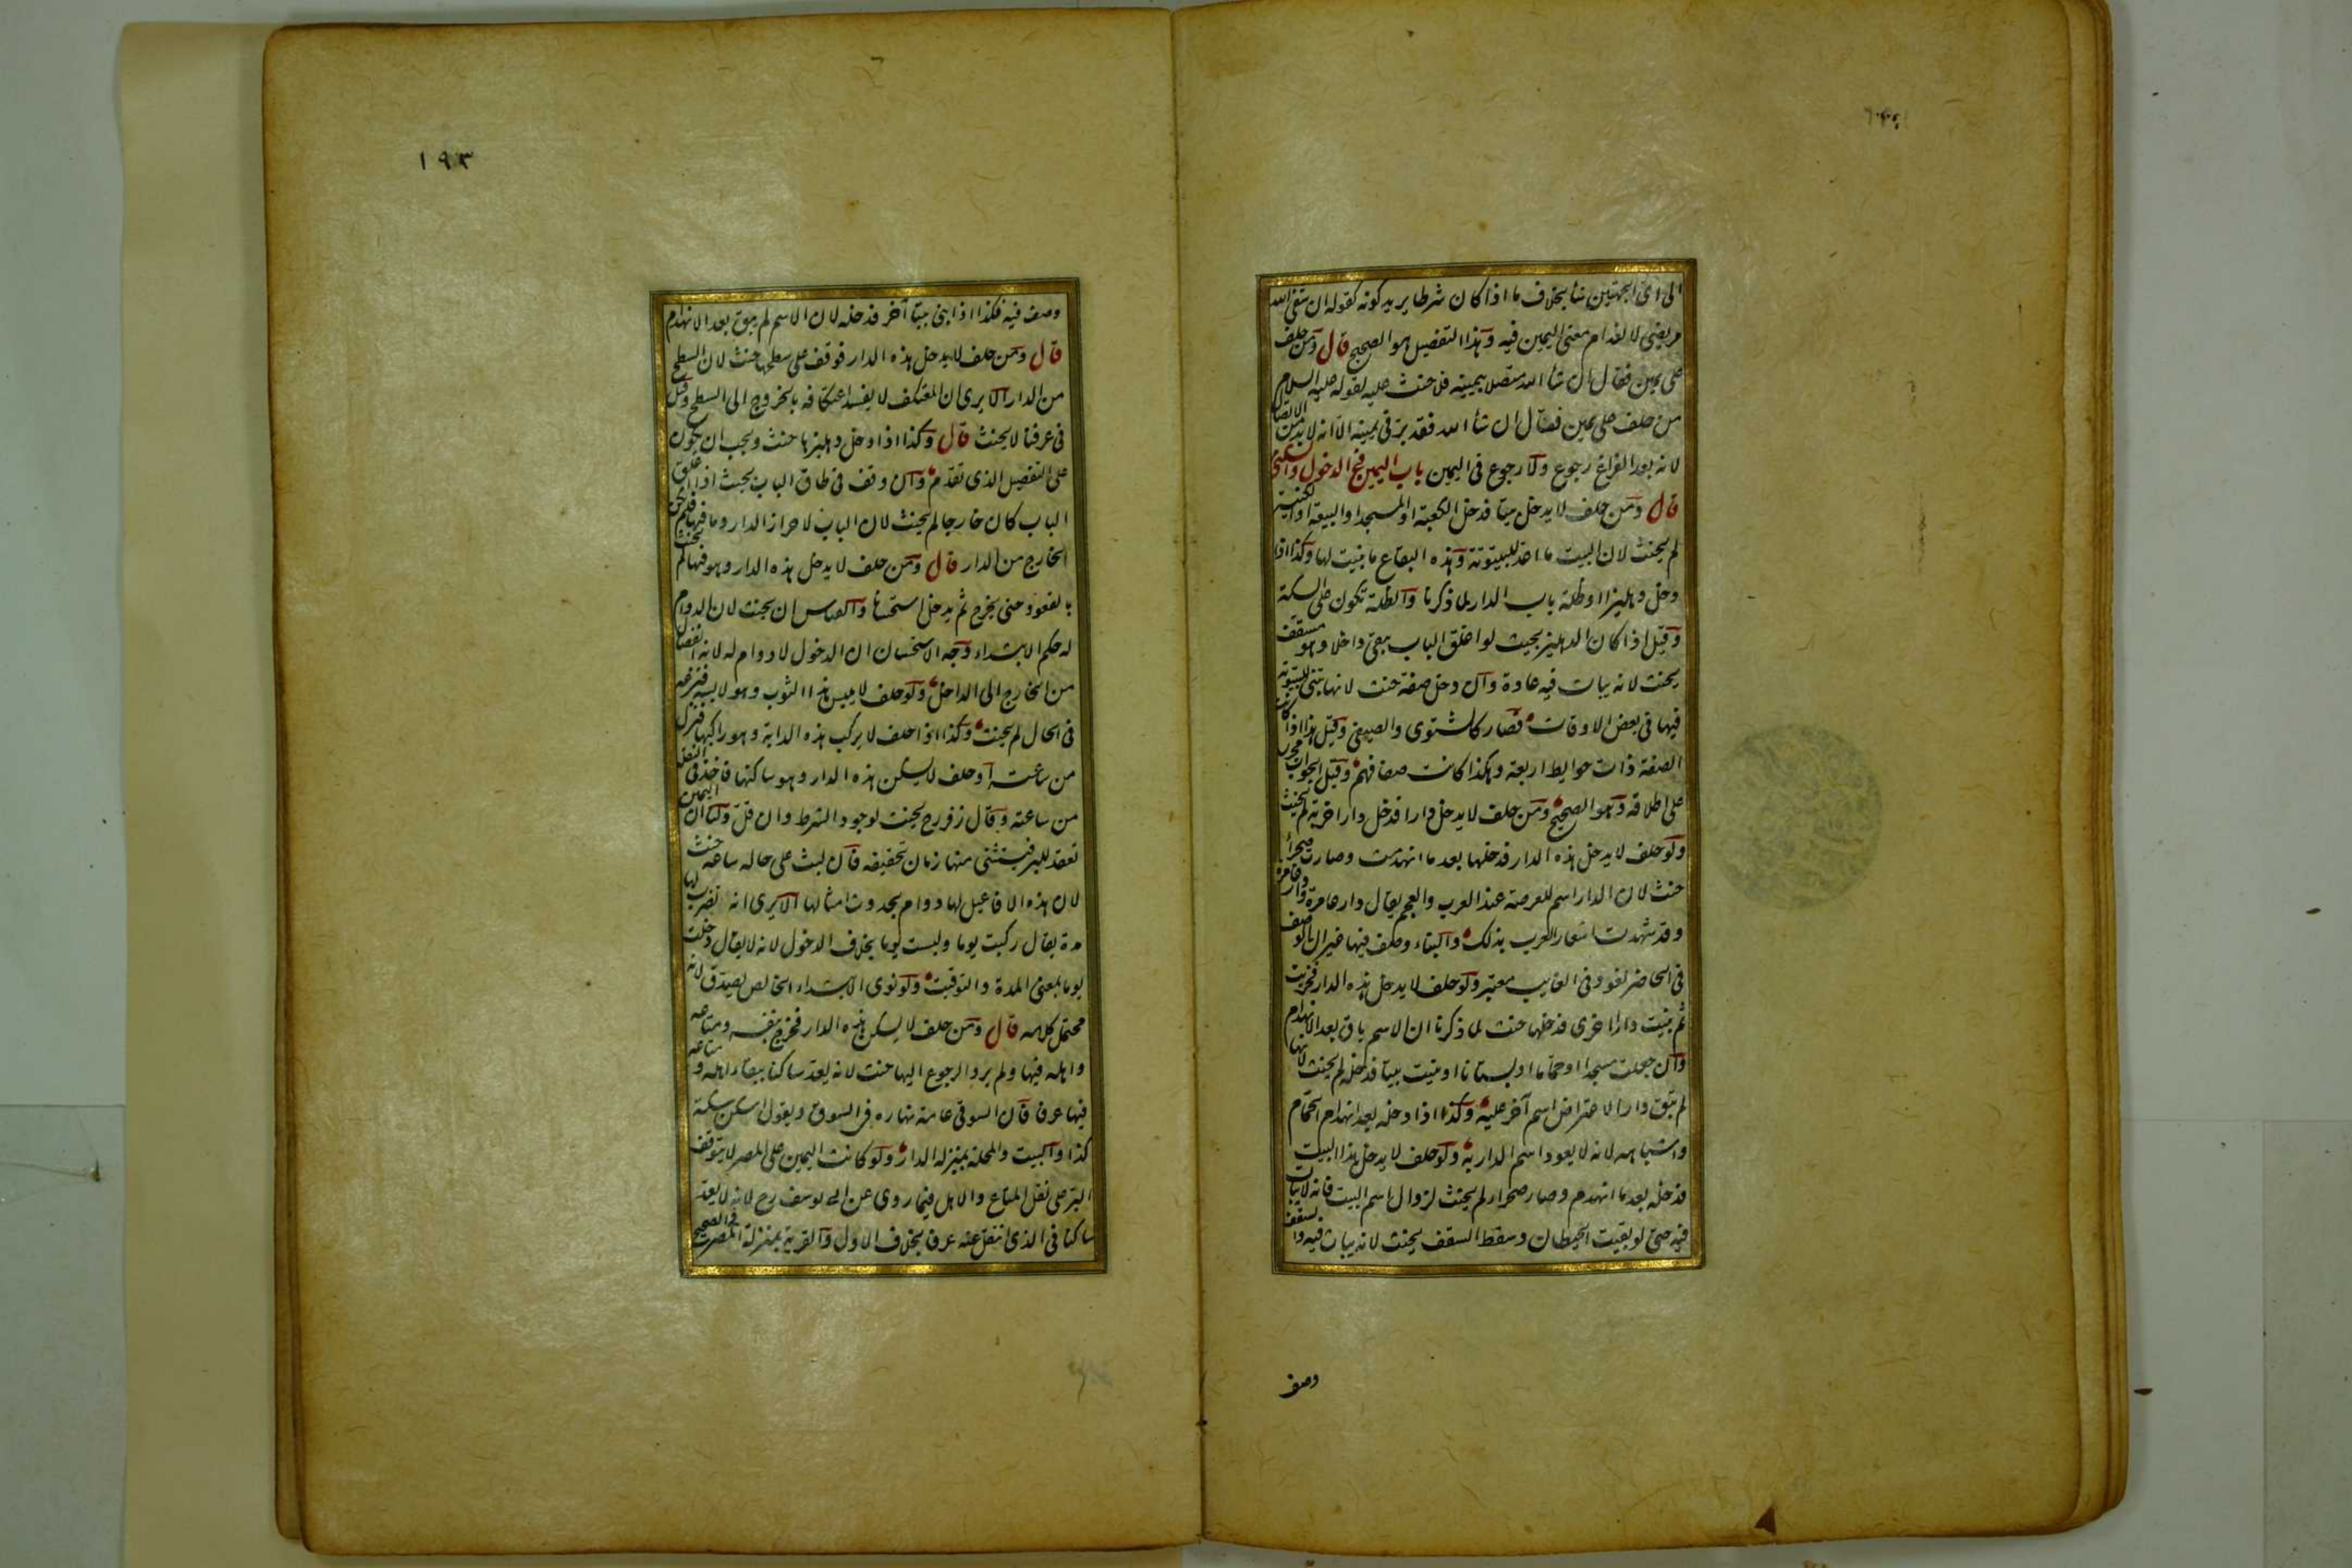 الى اى الجهتين شأ بخلاف ما اذا كان شرطا يريد كونه كقوله ان شفى الله
مريضى لانعدام معنى اليمين فيه وهذا التفصيل هو الصحيح قال ومن حلف
على يمين فقال ان شأ الله متصلا بيمينه فلا حنث عليه لقوله عليه السلام
من حلف على يمين فقال ان شأ الله فقد برّ فى يمينه الّا انه لابد من الاتصال
لانه بعد الفراغ رجوع ولا رجوع فى اليمين باب اليمين فى الدخول والسكنى
قال ومن حلف لا يدخل بيتا فدخل الكعبة او المسجد او البيعة او الكنيسة
لم يحنث لان البيت ما اعد للبيتوتة وهذه البقاع ما بنيت لها وكذا اذا
دخل دهليزا او ظلة باب الدار لما ذكرنا والظلة تكون على السكة
وقيل اذا كان الدهليز بحيث لو اغلق الباب يبقى داخلا وهو مسقف
يحنث لانه يبات فيه عادة وان دخل صفة حنث لانها تبنى للبيتوتة
فيها فى بعض الاوقات فصار كالشتوى والصيفى وقيل هذا اذا كانت
الصفة ذات حوايط اربعة وهكذا كانت صفافهم وقيل الجواب مجرى
على اطلاقه وهو الصحيح ومن حلف لا يدخل دارا فدخل دارا خربة لم يحنث
ولو حلف لا يدخل هذه الدار فدخلها بعد ما انهدمت وصارت صحراء
حنث لان الدار اسم للعرصة عند العرب والعجم يقال دار عامرة ودار غامرة
وقد شهدت اشعار العرب بذلك والبناء وصف فيها غير ان الوصف
فى الحاضر لغو وفى الغايب معتبر ولو حلف لا يدخل هذه الدار فخربت
ثم بنيت دارا اخرى فدخلها حنث لما ذكرنا ان الاسم باق بعد الانهدام
وان جعلت مسجدا او حمّاما او بستانا او بنيت بيتا فدخله لم يحنث لانها
لم تبق دارا لاعتراض اسم آخر عليه وكذا اذا دخله بعد انهدام الحمّام
واشباهه لانه لا يعود اسم الدارية ولو حلف لا يدخل هذا البيت
فدخله بعد ما انهدم وصار صحراء لم يحنث لزوال اسم البيت فانه لا يبات
فيه حتى لو بقيت الحيطان وسقط السقف يحنث لانه يبات فيه والسقف
وصف
١٩٣
وصف فيه فكذا اذا بنى بيتا آخر فدخله لان الاسم لم يبق بعد الانهدام
قال ومن حلف لا يدخل هذه الدار فوقف على سطحها حنث لان السطح
من الدار الا يرى ان المعتكف لا يفسد اعتكافه بالخروج الى السطح وقيل
فى عرفنا لا يحنث قال وكذا اذا دخل دهليزها حنث ويجب ان يكون
على التفصيل الذى تقدم وان وقف فى طاق الباب بحيث اذا اغلق
الباب كان خارجا لم يحنث لان الباب لاحراز الدار وما فيها فلم يكن
الخارج من الدار قال ومن حلف لا يدخل هذه الدار وهو فيها لم يحنث
بالقعود حتى يخرج ثم يدخل استحسانا والقياس ان يحنث لان الدوام
له حكم الابتداء وجه الاستحسان ان الدخول لا دوام له لانه انفصال
من الخارج الى الداخل ولو حلف لا يلبس هذا الثوب وهو لابسه فنزعه
فى الحال لم يحنث وكذا اذا حلف لا يركب هذه الدابة وهو راكبها فنزل
من ساعته او حلف لا يسكن هذه الدار وهو ساكنها فاخذ فى النقلة
من ساعته وقال زفر رح يحنث لوجود الشرط وان قلّ ولنا ان اليمين
تعقد للبر فيستثنى منها زمان تحقيقه فان لبث على حاله ساعة حنث
لان هذه الافاعيل لها دوام بحدوث امثالها الا يرى انه تضرب لها
مدة يقال ركبت يوما ولبست يوما بخلاف الدخول لانه لا يقال دخلت
يوما بمعنى المدة والتوقيت ولو نوى الابتداء الخالص يصدق لانه
محتمل كلامه قال ومن حلف لا يسكن هذه الدار فخرج بنفسه ومتاعه
واهله فيها ولم يرد الرجوع اليها حنث لانه يعد ساكنا ببقاء اهله ومتاعه
فيها عرفا فان السوقى عامة نهاره فى السوق ويقول اسكن سكة
كذا والبيت والمحلة بمنزلة الدار ولو كانت اليمين على المصر لا يتوقف
البر على نقل المتاع والاهل فيما روى عن ابى يوسف رح لانه لا يعد
ساكنا فى الذى انتقل عنه عرفا بخلاف الاول والقرية بمنزلة المصر فى الصحيح